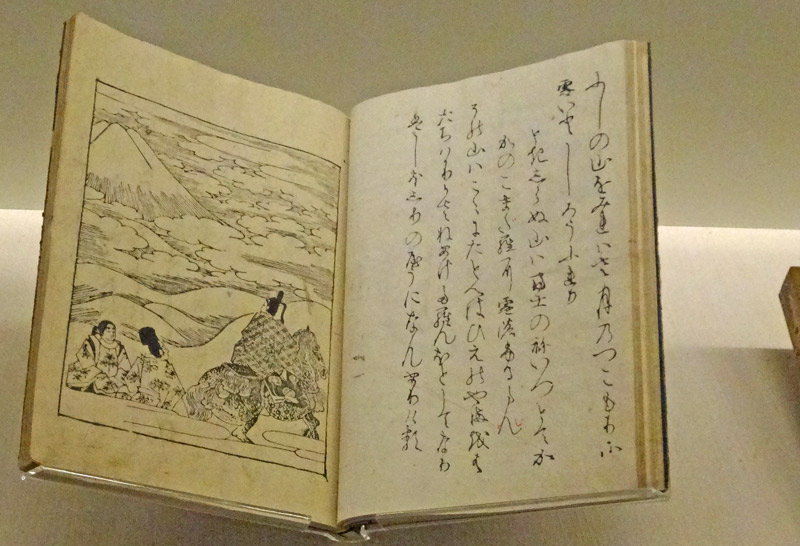 ふしの山をみれはさ月のつこもりに
雪いとしろうふれり
ときしらぬ山は富士の祢いつとてか
かのこまたらに雪のふるらん
その山はこゝにたとへはひえの山をは
たちはかりかさねあけたらんほとしてなり
はしほしりのやうになんありける